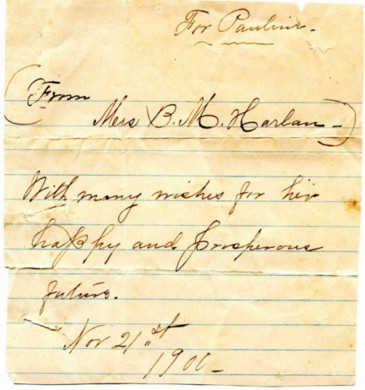 For Pauline.
(From
Mrs B. M. Harlan-)
With many wishes for her
happy and prosperous
future.
Nov 21"st
1900-